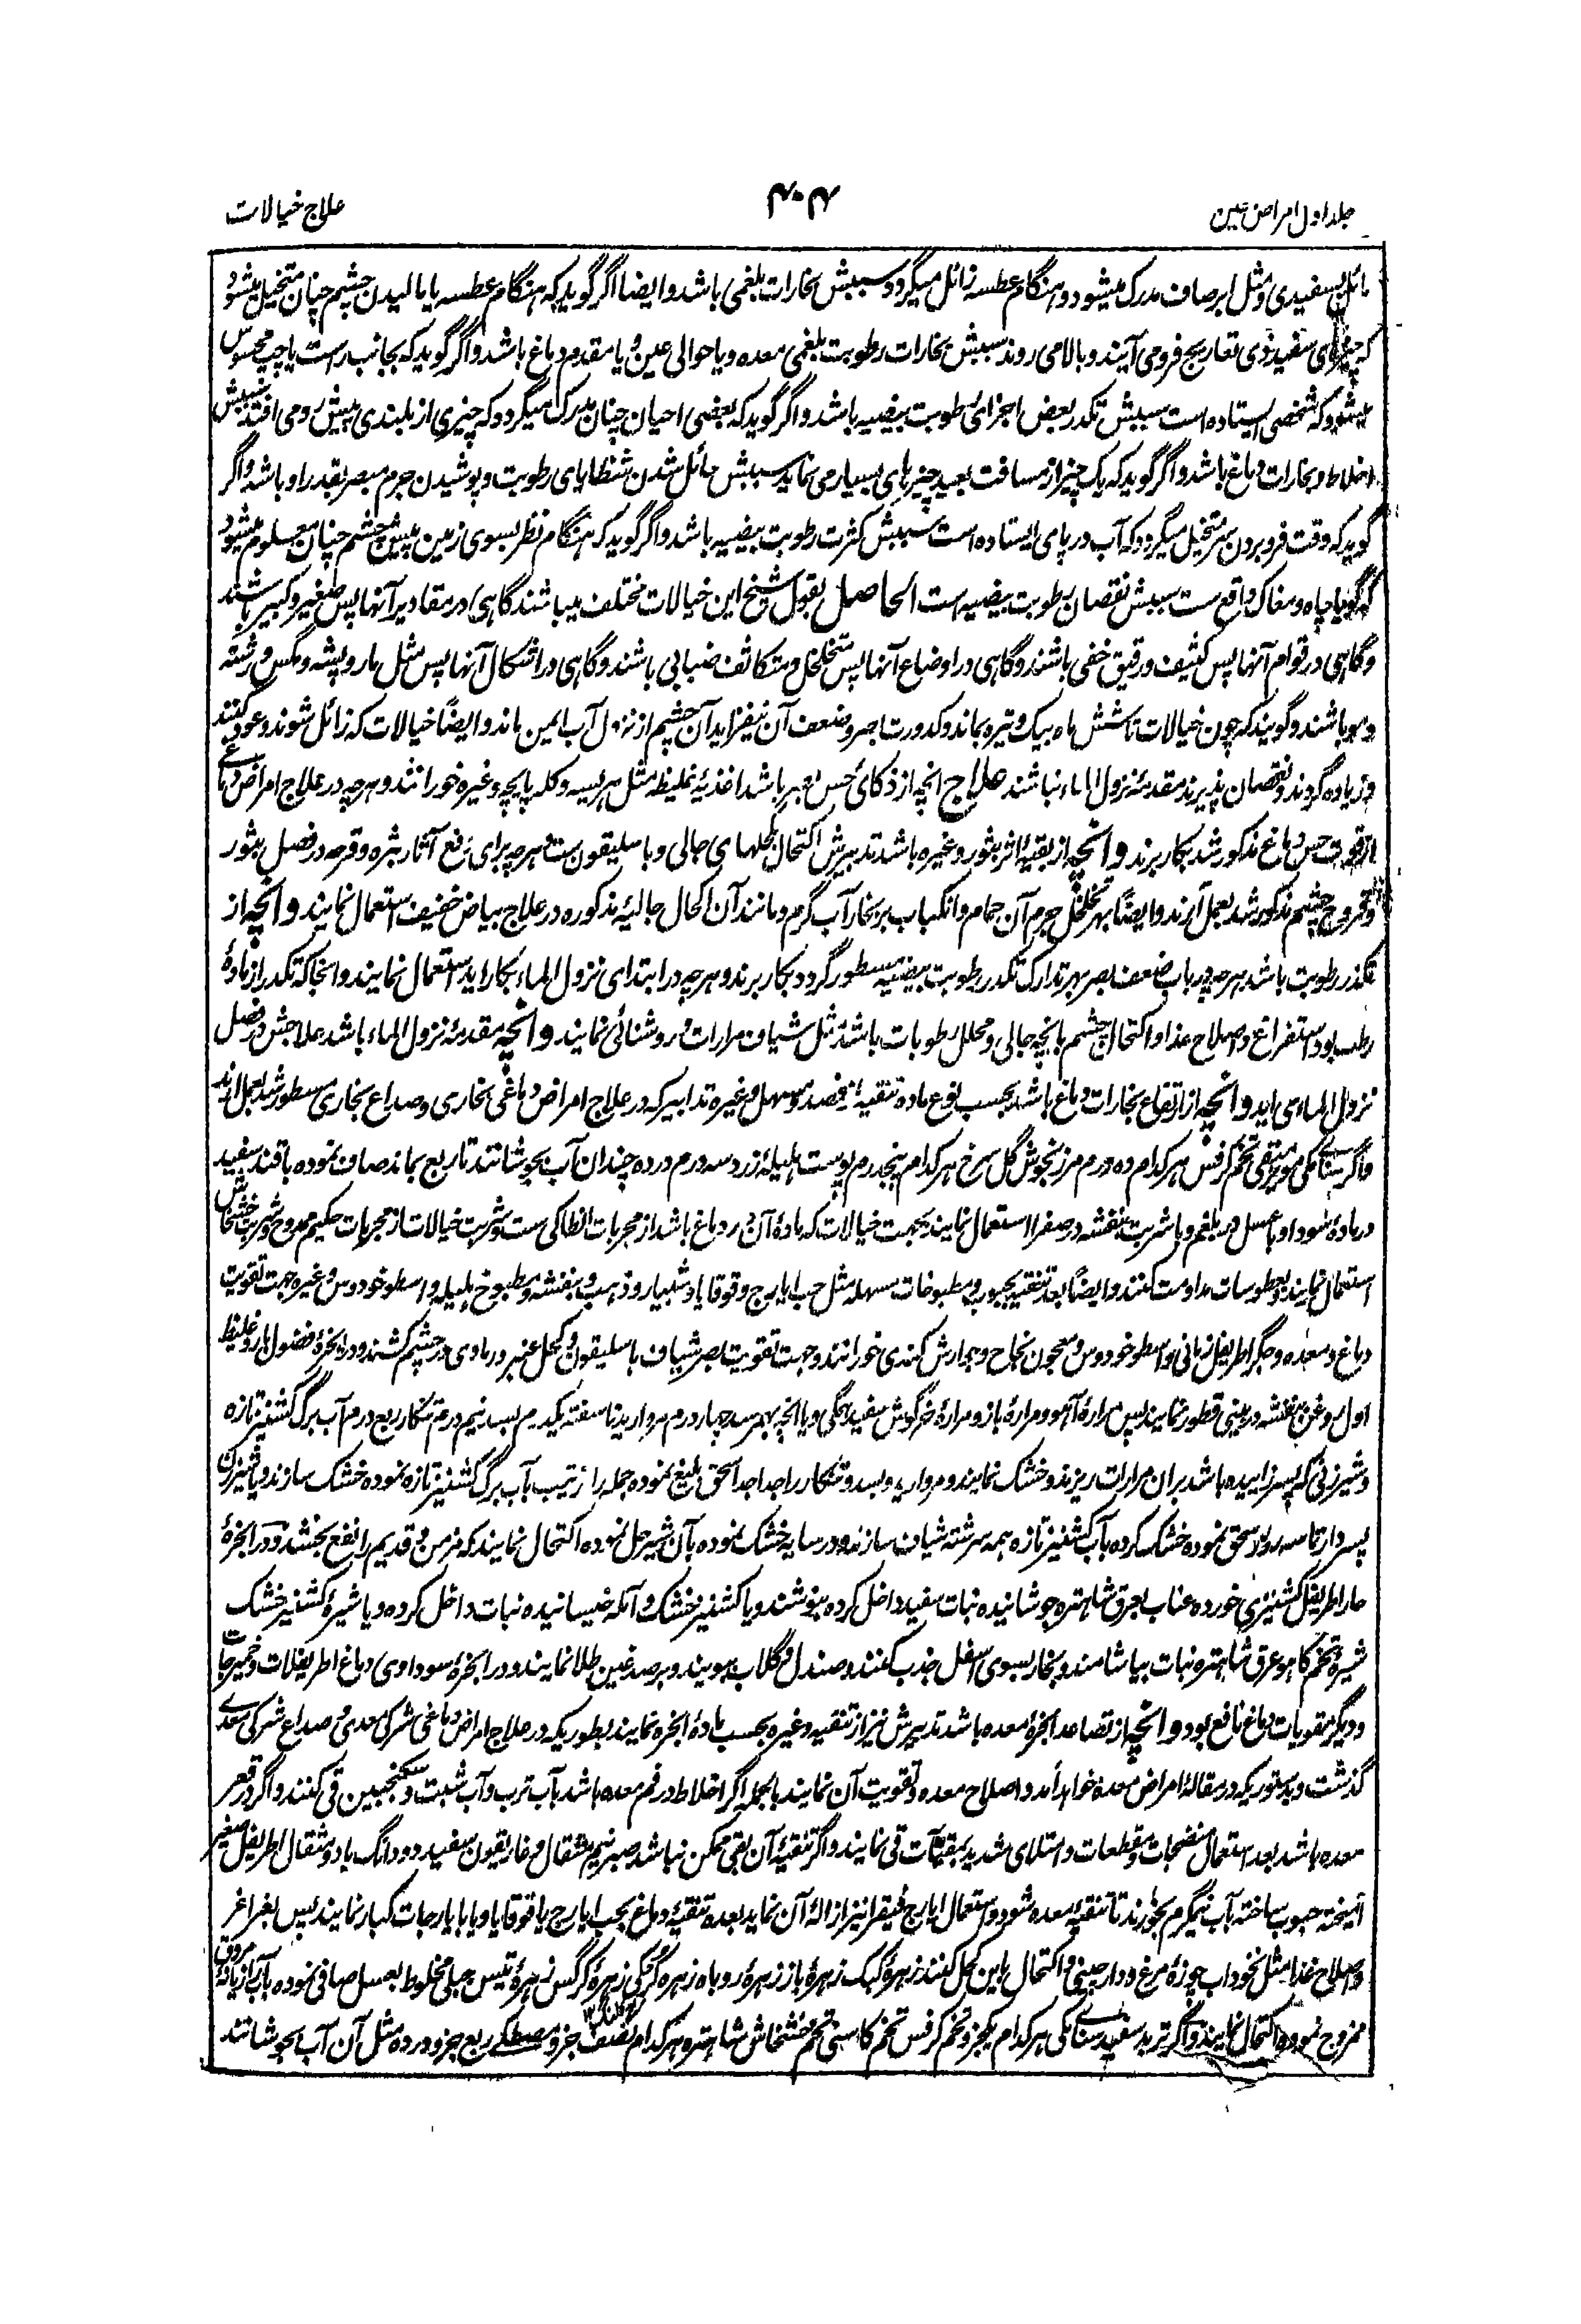 جلد اول امراض عین
۴۰۴
علاج خیالات
مائل بسفیدی و مثل ابر صاف مدرک میشود و هنگام عطسه زائل میگردد سببش بخارات بلغمی باشد و ایضا اگر گوید که هنگام عطسه یا مالیدن چشم چنان متخیل میشود
که چیزهای سفید ذوی تعاریج فرو می آیند و بالا می روند سببش بخارات رطوبت بلغمی معده و یا حوالی عین و یا مقدم دماغ باشد و اگر گوید که بجانب راست یا چپ محسوس
میشود که شخصی ایستاده است سببش تکدر بعض اجزای رطوبت بیضیه باشد و اگر گوید که بعضی احیان چنان مدرک میگردد که چیزی از بلندی پیش رو می افتد سببش
اخلاط و بخارات دماغ باشد و اگر گوید که یک چیز از مسافت بعید چیزهای بسیار می نماید سببش مائل شدن شظایای رطوبت و پوشیدن جرم مبصر بقدر او باشد و اگر
گوید که وقت فرو بردن سر متخیل میگردد که آب در پای ایستاده است سببش کثرت رطوبت بیضیه باشد و اگر گوید که هنگام نظر بسوی زمین پیش چشم چنان معلوم میشود
که گویا چاه و مغاک واقع ست سببش نقصان رطوبت بیضیه است الحاصل بقول شیخ این خیالات مختلف میباشند گاهی در مقادیر آنها پس صغیر و کبیر باشند
و گاهی در قوام آنها پس کثیف و رقیق خفی باشند و گاهی در اوضاع آنها پس متخلخل و متکاثف ضبابی باشند و گاهی در اشکال آنها پس مثل مار و پشه و مگس و رشته
و مو باشند و گویند که چون خیالات تا شش ماه بیک وتیره بماند و کدورت بصر و ضعف آن نیفزاید آن چشم از نزول آب ایمن ماند و ایضاً خیالات که زائل شوند و عود کنند
و زیاده گردند و نقصان پذیرند مقدمه نزول الماء نباشند علاج انچه از ذکای حس بصر باشد اغذیه غلیظه مثل هریسه و کله پایچه و غیره خورانند و هر چه در علاج امراض دماغی
از قوت حس دماغ مذکور شد بکار برند و انچه از بقیه اثر بثور و غیره باشد تدبیرش اکتحال بکحلهای جالی و باسلیقون ست و هر چه برای رفع آثار بثره و قرحه در فصل بثور
و قروح چشم مذکور شد بعمل آرند و ایضاً بهر تخلخل جرم آن حمام و انکباب بر بخار آب گرم و مانند آن اکحال جالیه مذکوره در علاج بیاض خفیف استعمال نمایند و انچه از
تکدر رطوبت باشد هر چه در باب ضعف بصر بهر تدارک تکدر رطوبت بیضیه مسطور گردد بکار برند و هر چه در ابتدای نزول الماء بکار آید استعمال نمایند و انجا که تکدر از ماده
رطب بود استفراغ و اصلاح غذا و اکتحال چشم بانچه جالی و محلل رطوبات باشد مثل شیاف مرارات و روشنائی نمایند و انچه مقدمه نزول الماء باشد علاجش در فصل
نزول الماء می آید و انچه از ارتفاع بخارات دماغ باشد بحسب نوع ماده تنقیه بفصد و مسهل و غیره تدابیر که در علاج امراض دماغی بخاری و صداع بخاری مسطور شد بعمل آرند
و اگر سنای مکی مویز منقی تخم کرفس هر کدام ده درم مرزنجوش گل سرخ هر کدام پنجدرم پوست هلیله زرد سه درم در ده چندان آب بجوشانند تا ربع بماند صاف نموده با قند سفید
در ماده سودا و با عسل در بلغم و با شربت بنفشه در صفرا استعمال نمایند بجهت خیالات که ماده آن در دماغ باشد از مجربات انطاکی ست و شربت خیالات از مجربات حکیم ممدوح و شربت خشخاش
استعمال نمایند و بعطوسات مداومت کنند و ایضاً بعد تنقیه بحبوب و مطبوخات مسهله مثل حب ایارج و قوقایا و شبیار و ذهب و بنفشه و مطبوخ هلیله و اسطوخودوس و غیره جهت تقویت
دماغ و معده و جگر اطریفل زمانی و اسطوخودوس و معجون نجاح و جوارش کندی خورانند و جهت تقویت بصر شیاف باسلیقون و کحل عنبر و رمادی در چشم کشند و در ابخره فضول بارد و غلیظ
اول روغن بنفشه در بینی قطور نمایند پس مراره آهو و مراره باز و مراره خرگوش سفید همگی و یا انچه بهم رسد چهار درم مروارید ناسفته یکدرم بسد نیم درم تنکار ربع درم آب برگ کشنیز تازه
و شیر زنی که پسر زاییده باشد بران مرارات ریزند و خشک نمایند و مروارید و بسد و تنکار را جدا جدا سحق بلیغ نموده جمله را ترتیب بآب برگ کشنیز تازه نموده خشک سازند و یا شیر زن
پسر دار تا سه روز سحق نموده خشک کرده بآب کشنیز تازه همه سرشته شیاف سازند و در سایه خشک نموده بآن شیر حل نموده اکتحال نمایند که مزمن و قدیم را نفع بخشد و در ابخره
حار اطریفل کشنیزی خورده عناب بعرق شاهتره جوشانیده نبات سفید داخل کرده بنوشند و یا کشنیز خشک و آمله خیسانیده نبات داخل کرده و یا شیره کشنیز خشک
شیره تخم کاهو عرق شاهتره نبات بیاشامند و بخار بسوی اسفل جذب کنند و صندل و گلاب بویند و بر صدغین طلا نمایند و در ابخره سوداوی دماغ اطریفلات و خمیره جات
و دیگر مقویات دماغ نافع بود و انچه از تصاعد ابخره معده باشد تدبیرش نیز از تنقیه و غیره بحسب ماده ابخره نمایند بطوریکه در علاج امراض دماغی شرکی معدی و صداع شرکی معدی
گذشت و بدستوریکه در مقاله امراض معده خواهد آمد و اصلاح معده و تقویت آن نمایند بالجمله اگر اخلاط در فم معده باشد بآب ترب و آب شبت و سکنجبین قی کنند و اگر در قعر
معده باشد بعد استعمال منضجات و مقطعات و امتلای شدید بمقیئات قی نمایند و اگر تنقیه آن بقی ممکن نباشد صبر نیم مثقال و غاریقون سفید دو دانگ با دو مثقال اطریفل صغیر
آمیخته حبوب ساخته بآب نیمگرم بخورند تا تنقیه معده شود و استعمال ایارج فیقرا نیز ازاله آن نماید بعده تنقیه دماغ بحب ایارج یا قوقایا و یا بایارجات کبار نمایند پس بغراغر
و اصلاح غذا مثل نخوداب چوزه مرغ و دارچینی و اکتحال باین کحل کنند زهره کبک زهره باز زهره روباه زهره کرکی زهره کرگس زهره تیس جبلی مخلوط بعسل صافی نموده بآب رازیانه مروق
ممزوج نموده اکتحال نمایند و اگر تربد سفید سنای مکی هر کدام یکجزو تخم کرفس تخم کاسنی تخم خشخاش شاهتره هر کدام نصف جزو مصطکی ربع جزو در ده مثل آن آب بجوشانند